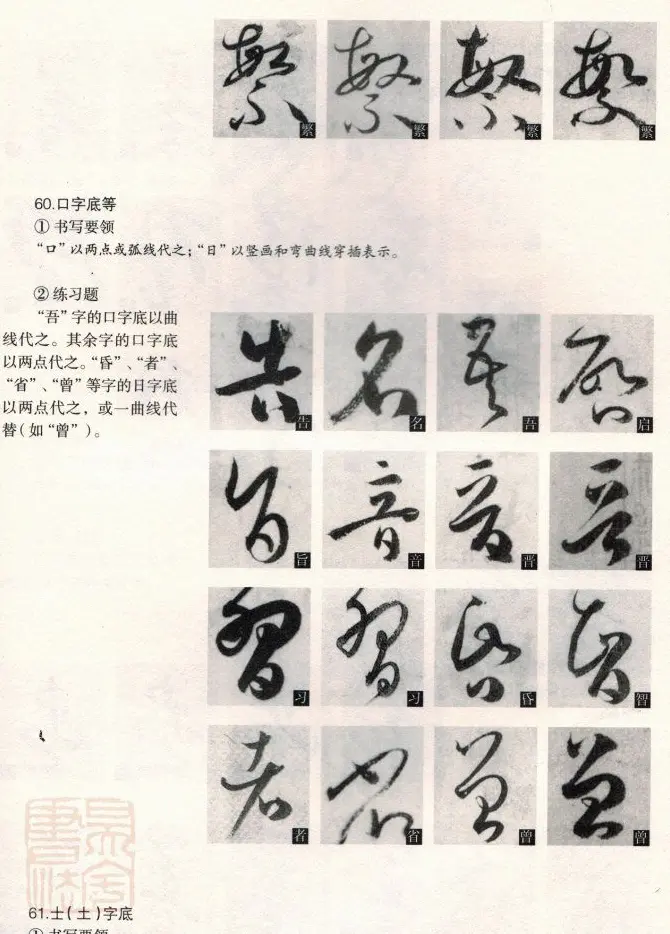 繁 繁 繁 繁
60.口字底等
① 书写要领
“口”以两点或弧线代之；“日”以竖画和弯曲线穿插表示。
② 练习题
“吾”字的口字底以曲
线代之。其余字的口字底
以两点代之。“昏”、“者”、
“省”、“曾”等字的日字底
以两点代之，或一曲线代
替（如“曾”）。
告 名 吾 启
旨 音 晋 晋
习 习 昏 智
者 省 曾 曾
61.士（土）字底
① 书写要领